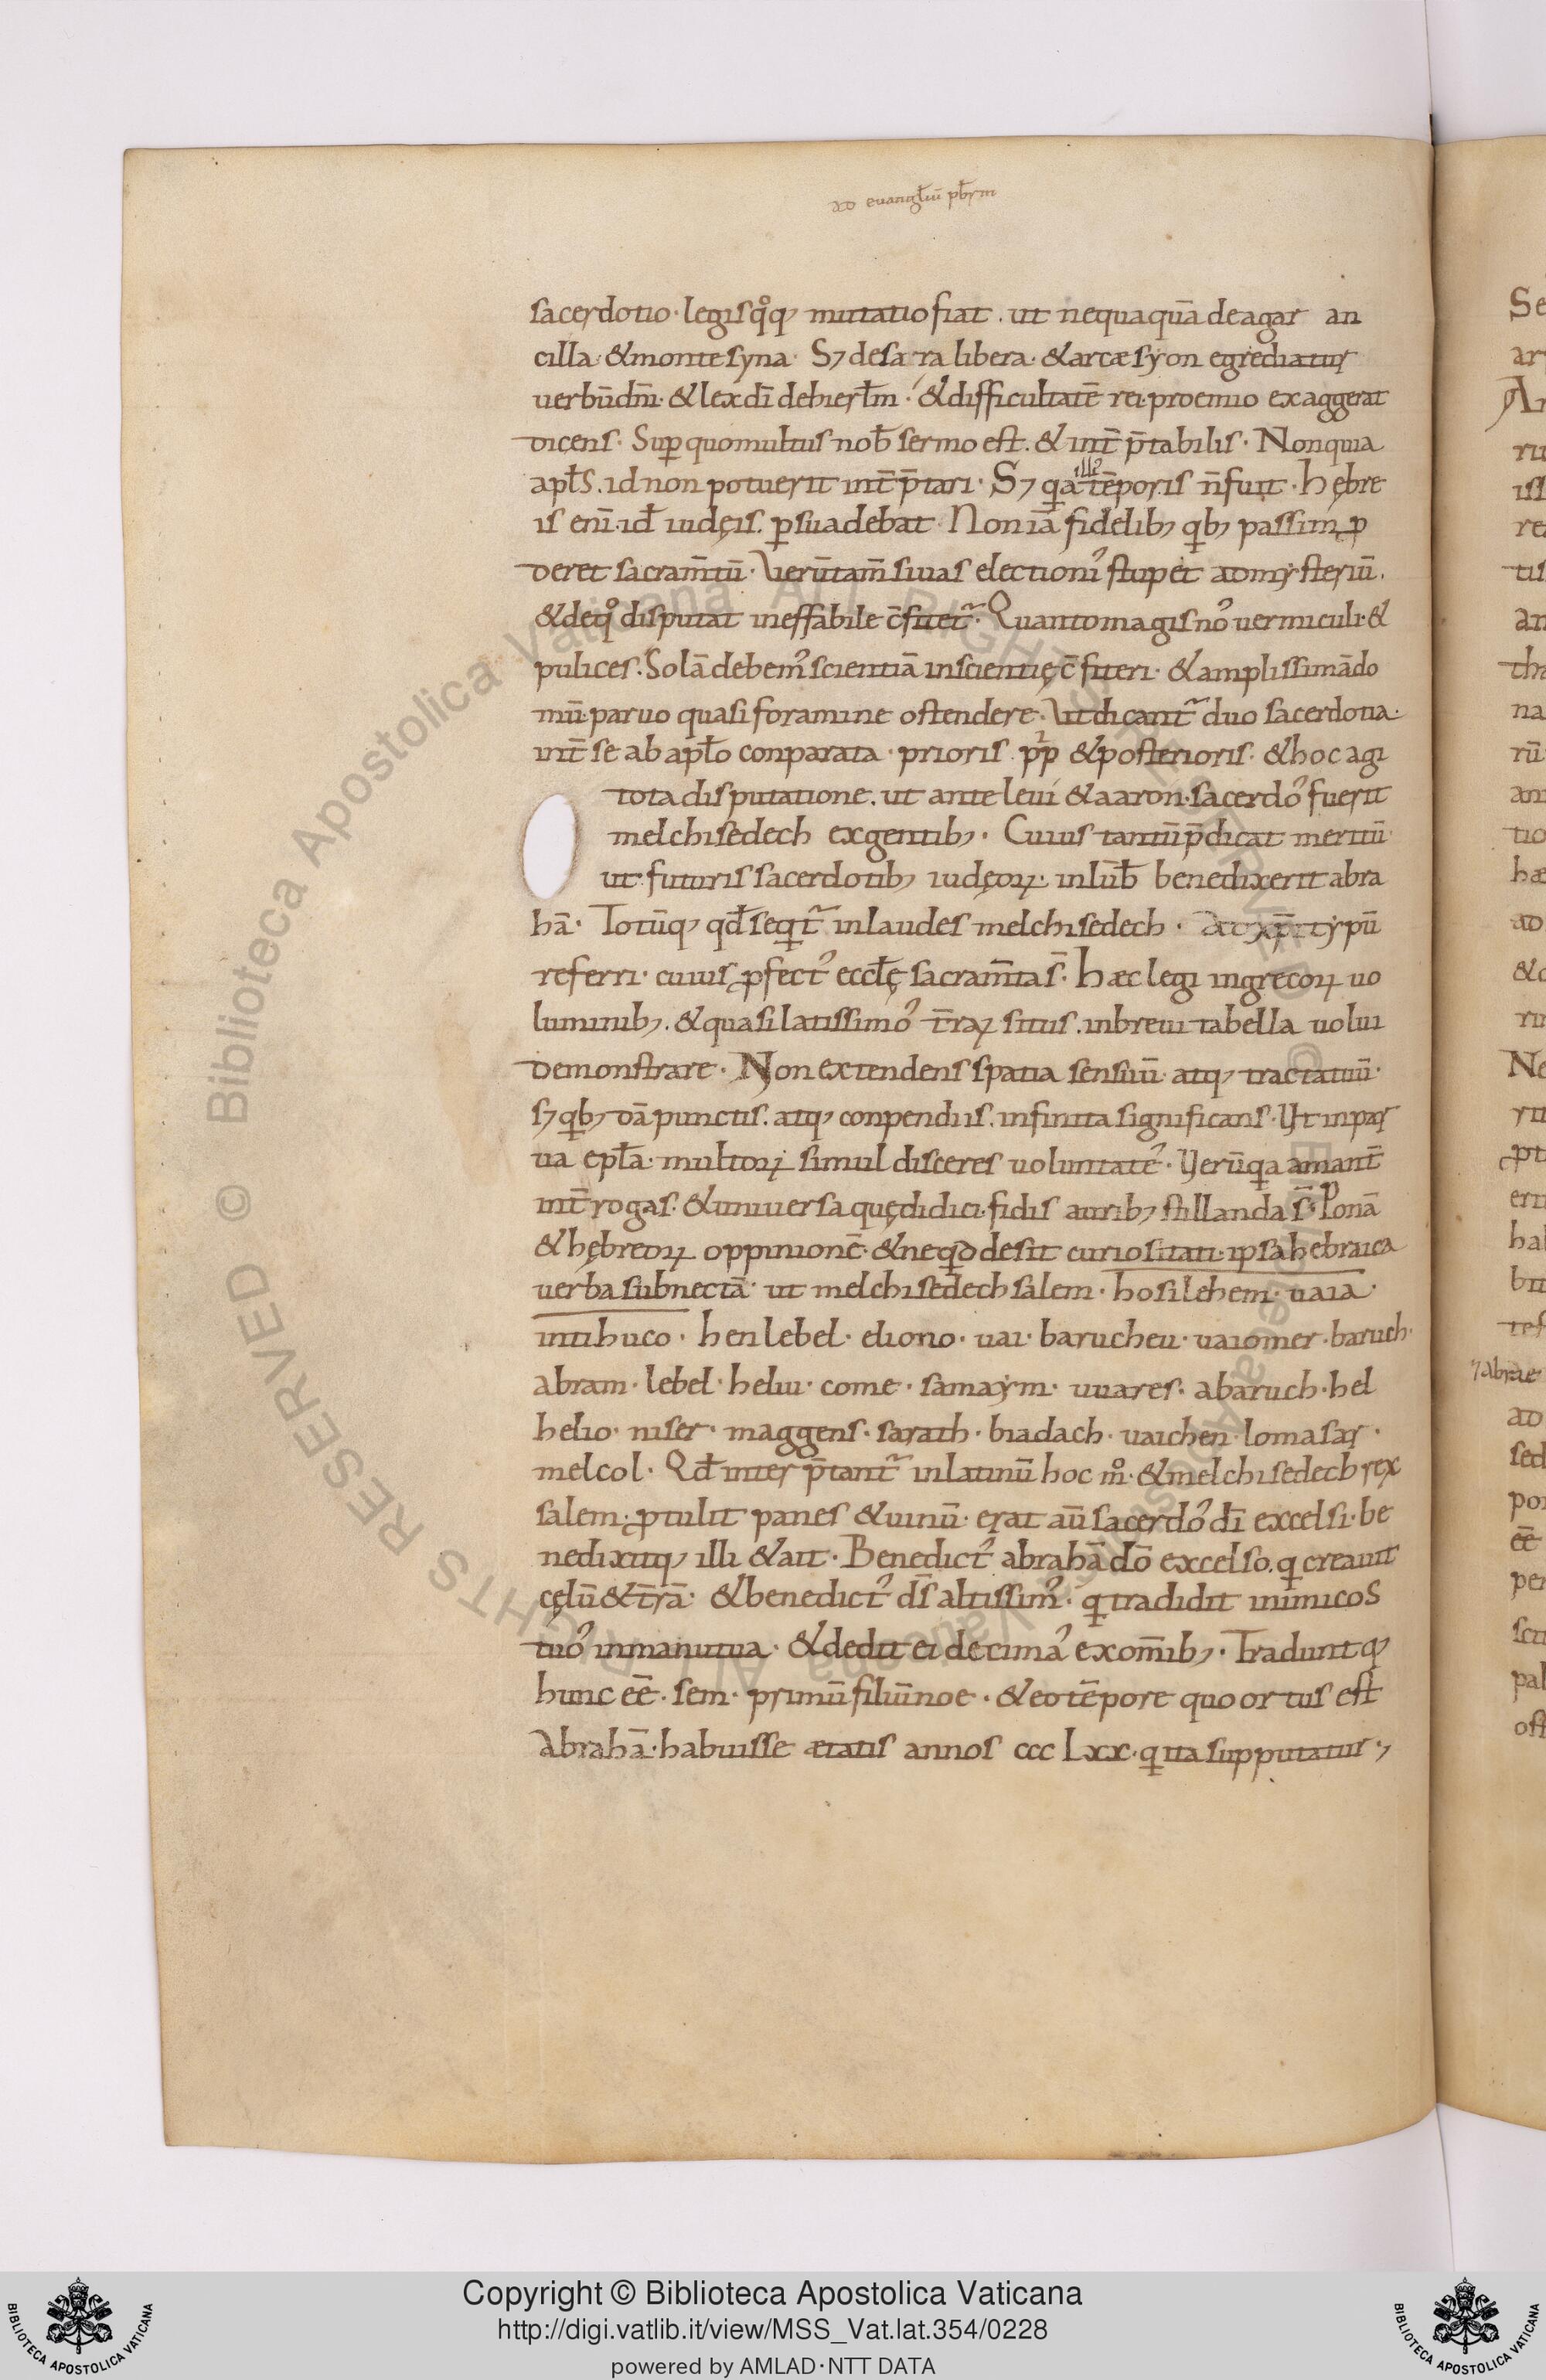 ad evangl̄iū pb̄rm
sacerdotio· legisqͦq; mutatio fiat. ut nequaquā de agar an
cilla· & monte syna· S; de sara libera· & arcæ sẏon egrediatur
uerbū dn̄i· & lex dī de hierl̄m· & difficultatē rei· proemio exaggerat
dicens· Sup̲ quo multus nob̄ sermo est. & int̄ p̄tabilis· Non quia
apl̄s. id non potuerit int̄ p̄tari· S; q̣a illi᷒ tēporis n̄ fuit· hębre
is enī· id̄ iudęis. p̲suadebat· Non iā fidelib; qb; passim p̲
deret sacram̄tū· Verūtam̄ si uas electioni᷒ stupet ad mẏsteriū.
& de qͦ disputat ineffabile c̄fitet᷑· Quanto magis no᷒ uermiculi· &
pulices. Solā debem᷒ scientiā inscientię c̄fiteri· & amplissimā do
mū· paruo quasi foramine ostendere· Ut dicant᷑ duo sacerdotia·
int̄ se ab apl̄o conparata· prioris pp̲ & posterioris· & hoc agi
tota disputatione. ut ante leui & aaron· sacerdo᷒ fuerit
melchisedech ex gentib;· Cuius tantū p̄dicat meritū·
ut futuris sacerdotib; iudęoꝝ· in lūb̄ benedixerit abra
hā· Totūq; qd̄ seqt᷑ in laudes melchisedech· ad xp̄i tẏpū
referri· cuius ꝓfect᷒ eccl̄ę sacram̄ta s̄· hæc legi in grecoꝝ uo
luminib;. & quasi latissimo᷒ t̄raꝝ situs. in breui tabella uolui
demonstrare· Non extendens spatia sensuū· atq; tractatuū·
s; qb; dā punctis. atq; conpendiis. infinita significans· Vt in par
ua epl̄a· multoꝝ simul disceres uoluntate᷒· Verū qa amant̄
int̄rogas· & uniuersa quę didici· fidis aurib; stillanda s̄· Ponā
& hębreoꝝ oppinionē· & ne qd desit curiositati· ipsa hebraica
uerba subnectā· ut melchisedech salem· hosilehem· uaia·
intihuco· hen lebel· eliono· uai· barucheu· uaiomer· baruch·
abram· lebel· heliu· come· samaẏm· uuares· abaruch· hel
helio· niser· maggens· sarath· biadach· uaichen· lomasar·
melcol· Qd̄ inter p̄tant᷑ in latinū hoc mͦ· & melchisedech rex
salem· ꝓtulit panes & uinū· erat aū sacerdo᷒ dī excelsi· be
nedixitq; illi & ait· Benedict᷒ abrahā dō excelso. q creauit
cęlū & t̄rā· & benedict᷒ ds̄ altissim᷒· q tradidit inimicos
tuo᷒ in manu tua· & dedit ei decima᷒ ex om̄ib;· Traduntq;
hunc eē· sem· primū filiū noe· & eo tēpore quo ortus est
Abrahā· habuisse ætatis annos ccc Lxx· q ita supputatur·;
Copyright © Biblioteca Apostolica Vaticana
http://digi.vatlib.it/view/MSS_Vat.lat.354/0228
powered by AMLAD·NTT DATA